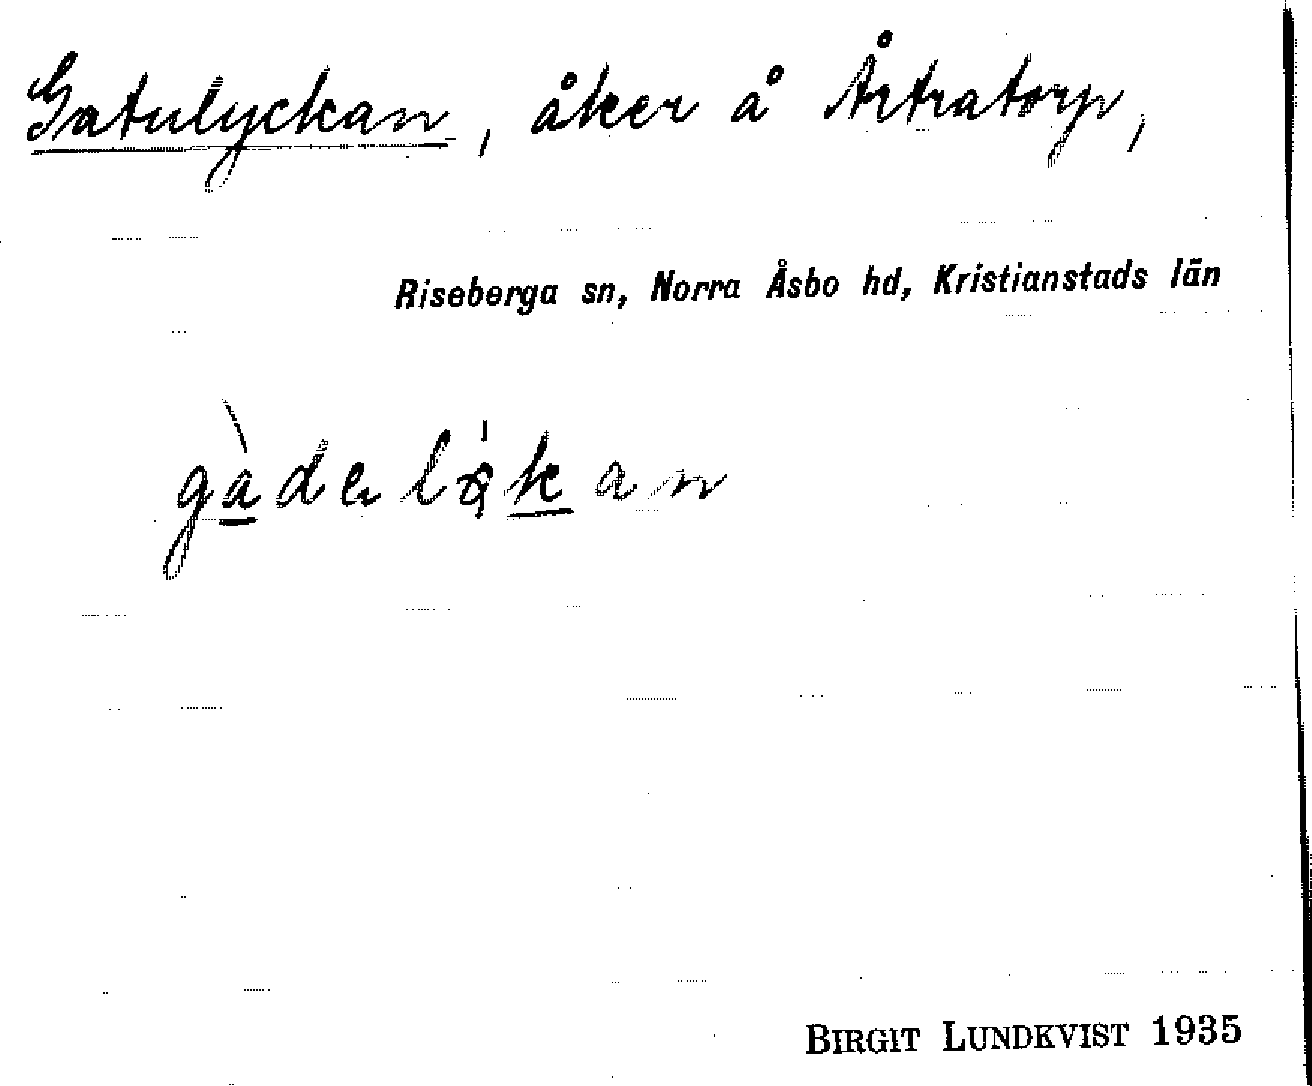 Gatulyckan, åker å Årtratorp,
Riseberga sn, Norra Åsbo hd, Kristianstads län
BIRGIT LUNDKVIST 1935